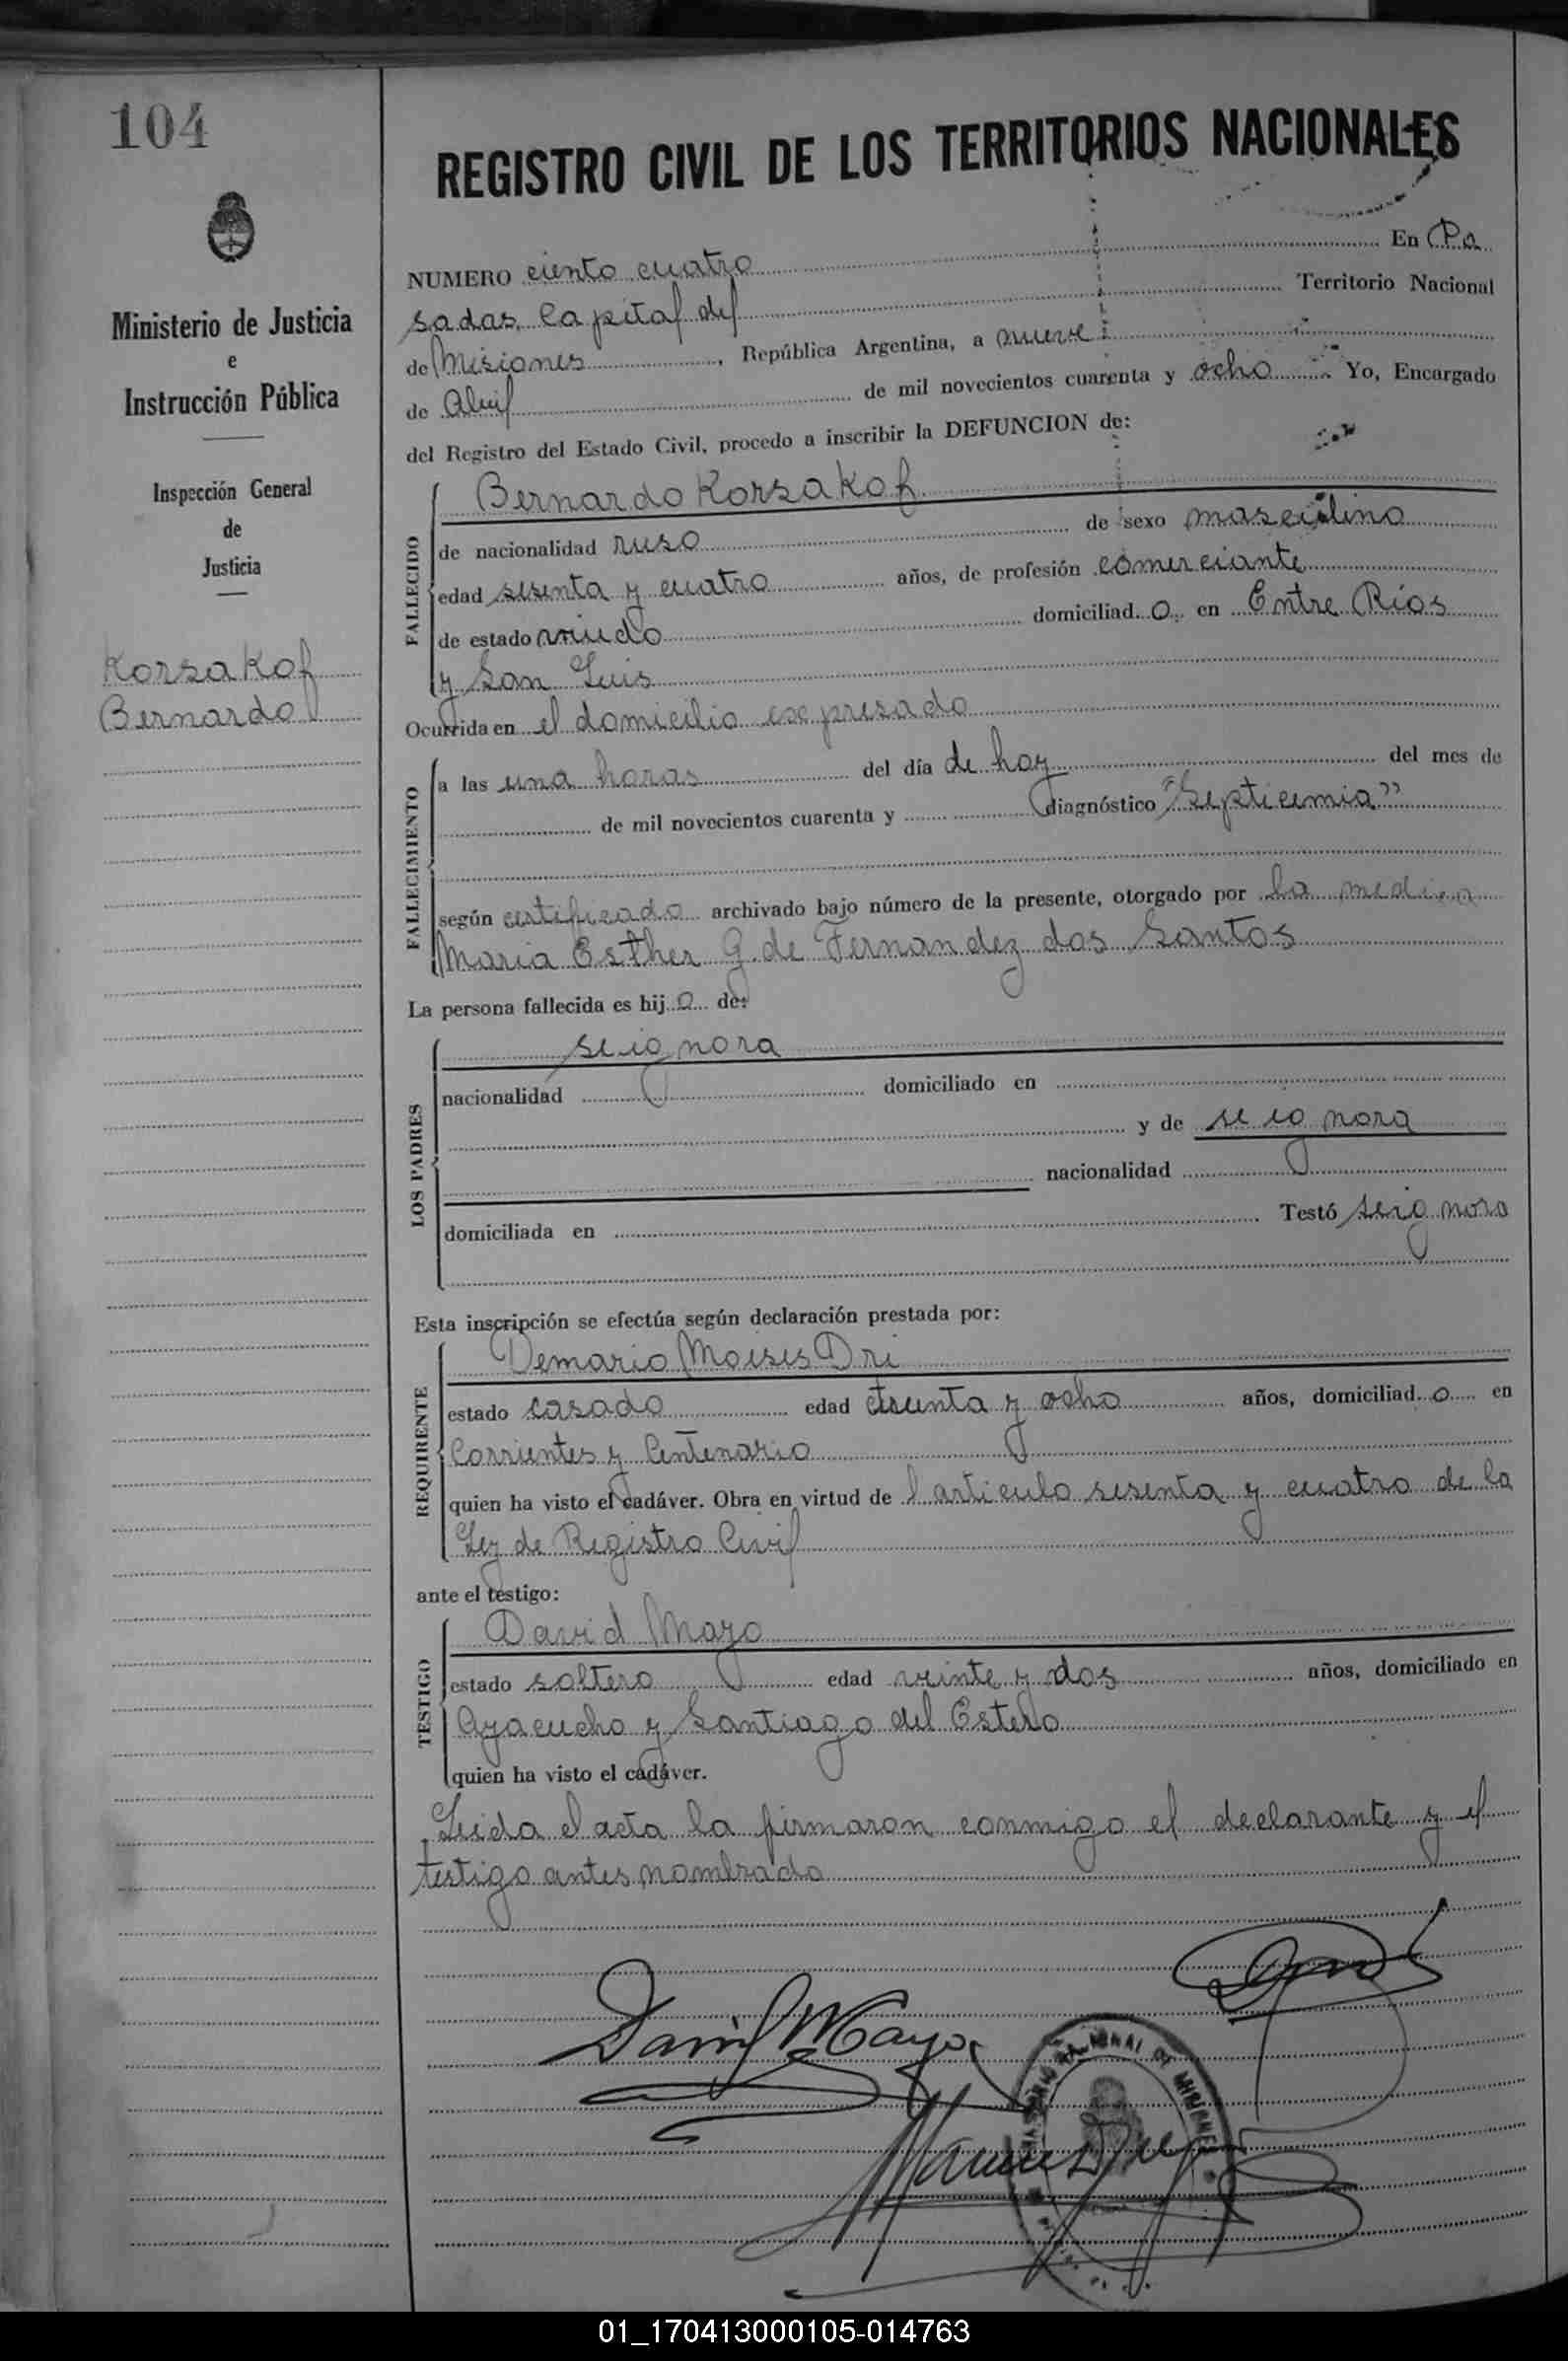 104
REGISTRO CIVIL DE LOS TERRITORIOS NACIONALES
Ministerio de Justicia
e
Instrucción Pública
Inspección General
de
Justicia
Korsakof
Bernardo
NUMERO ciento cuatro En Po
sadas, Capital del Territorio Nacional
de Misiones, República Argentina, a nueve
de Abril de mil novecientos cuarenta y ocho Yo, Encargado
del Registro del Estado Civil, procedo a inscribir la DEFUNCION de:
FALLECIDO
Bernardo Korsakof
de nacionalidad ruso de sexo masculino
edad sesenta y cuatro años, de profesión comerciante
de estado viudo domiciliad o en Entre Ríos
y San Luis
Ocurrida en el domicilio expresado
FALLECIMIENTO
a las una horas del día de hoy del mes de
de mil novecientos cuarenta y diagnóstico "Septicemia"
según certificado archivado bajo número de la presente, otorgado por la medica
Maria Esther G. de Fernandez dos Santos
La persona fallecida es hij o de:
LOS PADRES
se ignora
nacionalidad domiciliado en
y de se ignora
nacionalidad
domiciliada en Testó se ignora
Esta inscripción se efectúa según declaración prestada por:
REQUIRENTE
Demario Moises Dri
estado casado edad y ocho años, domiciliad o en
Corrientes y Centenario
quien ha visto el cadáver. Obra en virtud de l articulo sesenta y cuatro de la
Ley de Registro Civil
ante el testigo:
TESTIGO
David Mayo
estado soltero edad veinte y dos años, domiciliado en
Ayacucho y Santiago del Estero
quien ha visto el cadáver.
Leida el acta la firmaron conmigo el declarante y el
testigo antes nombrado
David Mayo
01_170413000105-014763